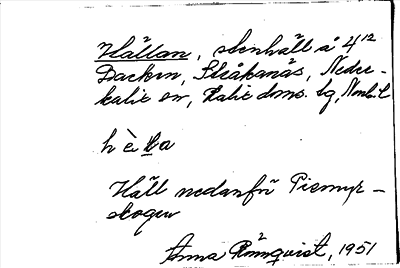 Hällan, stenhäll å 4¹²
Backen, Stråkanäs, Neder-
kalix sn, Kalix doms. tg, Nonb. l
hèla
Häll nedanför Piemyr-
skogen
Anna Rönnqvist, 1951